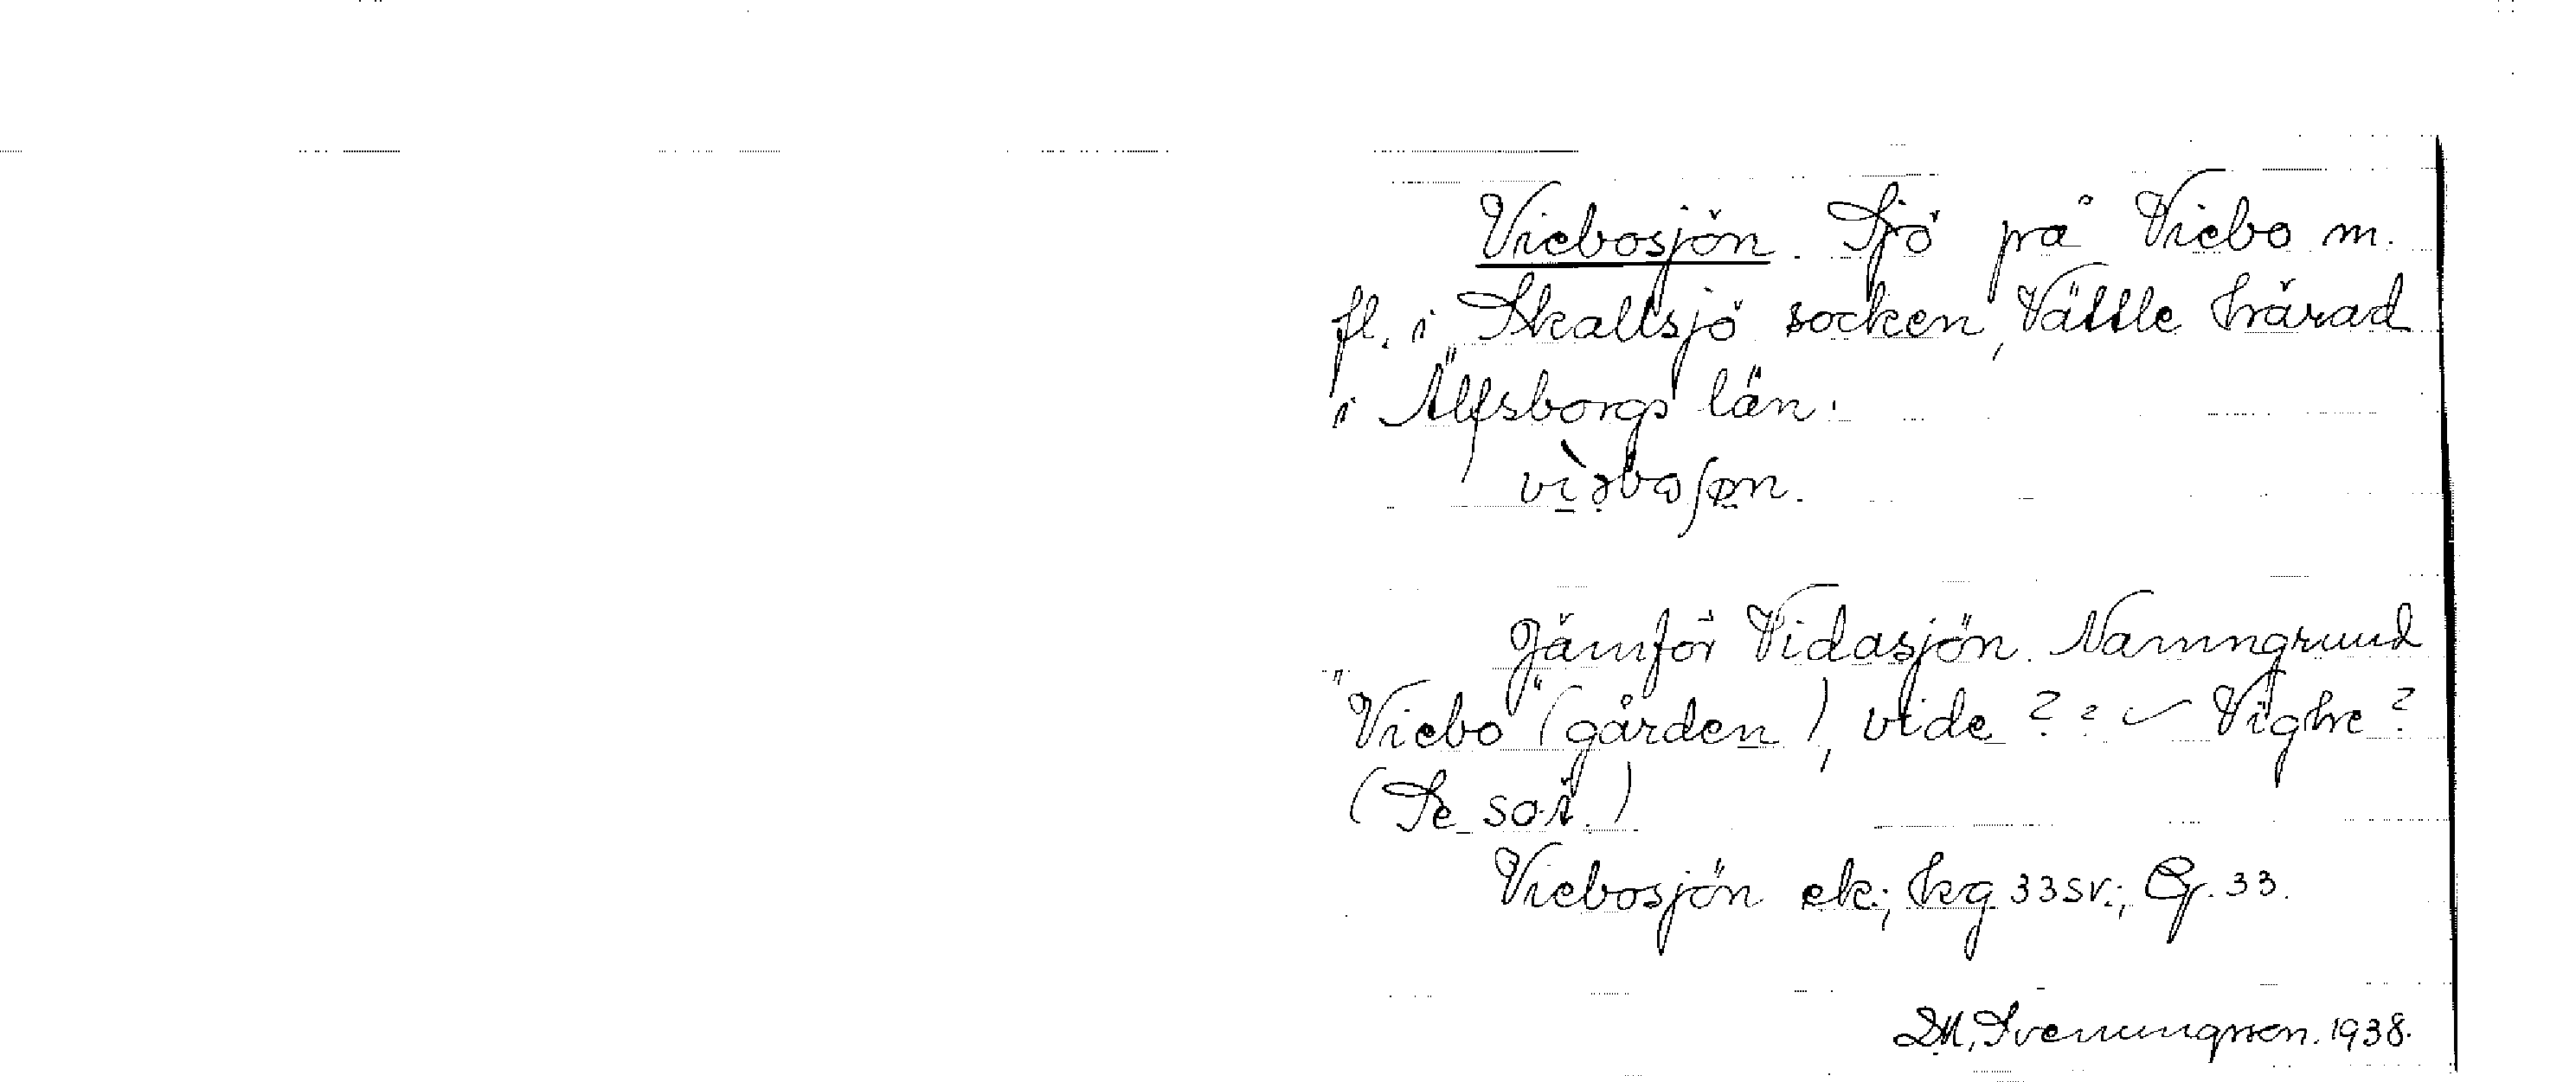 Viebosjön. Sjö på Viebo m.
fl. i Skallsjö socken, Vättle härad
i Älfsborgs län.
Jämför Vidasjön. Namngrund
"Viebo" (gården), vide ? = Vighe ?
(Se so i.)
Viebosjön ek.; hkg 33 sv.; Gr. 33.
D.M. Svenungsson. 1938.